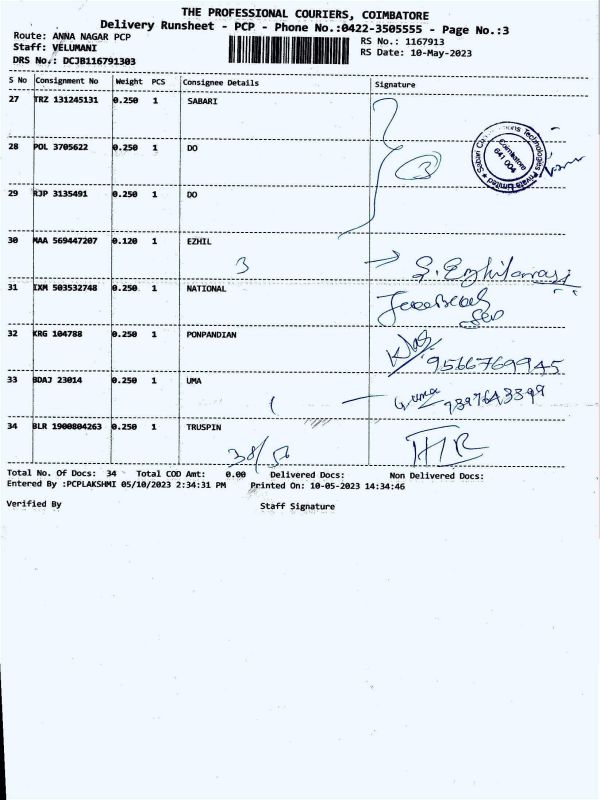 THE PROFESSIONAL COURIERS, COIMBATORE
Delivery Runsheet - PCP - Phone No.:0422-3505555 - Page No.:3
Route: ANNA NAGAR PCP
RS No.: 1167913
Staff: VELUMANI
RS Date: 10-May-2023
DRS No.: DCJB116791303
S No Consignment No Weight PCS Consignee Details Signature
27 TRZ 131245131 0.250 1 SABARI
28 POL 3705622 0.250 1 DO
3
Private Limited
Coimbatore
641 004
29 RJP 3135491 0.250 1 DO
30 MAA 569447207 0.120 1 EZHIL
3 S. Ezhilarasi
31 IXM 503532748 0.250 1 NATIONAL
32 KRG 104788 0.250 1 PONPANDIAN
9566769945
33 BDAJ 23014 0.250 1 UMA
uma 9397643399
34 BLR 1900804263 0.250 1 TRUSPIN
Total No. Of Docs: 34 Total COD Amt: 0.00 Delivered Docs: Non Delivered Docs:
Entered By :PCPLAKSHMI 05/10/2023 2:34:31 PM Printed On: 10-05-2023 14:34:46
Verified By Staff Signature